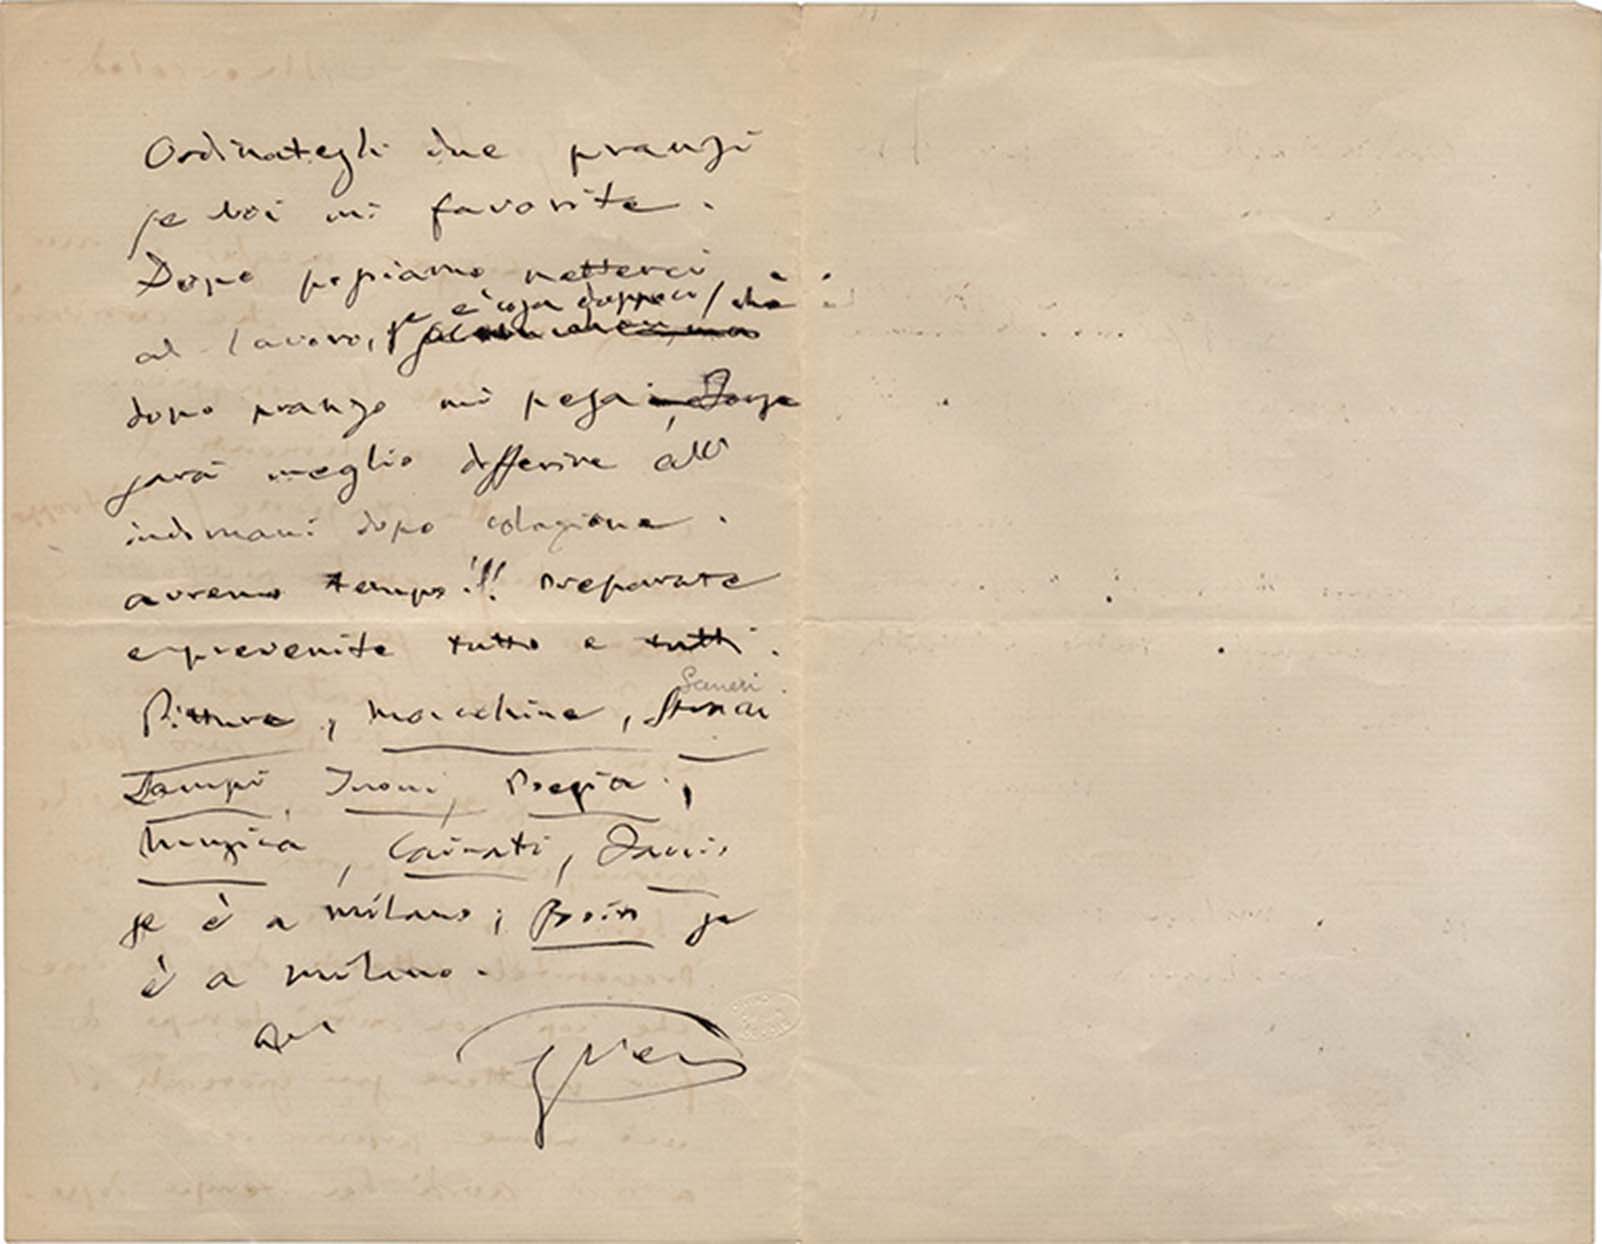 Ordinategli due pranzi
se voi mi favorite.
Dopo possiamo metterci
se è cosa da poco / chè
al lavoro,
dopo pranzo mi pesa
sarà meglio differire all'
indomani dopo colazione.
avremo tempo!!! Preparate
e prevenite tutto e tutti.
Scneri
Pitture, Macchine,
Lampi Tuoni, Poesia,
Musica, Cairati,
se è a Milano; Boito se
è a Milano.
GVerdi